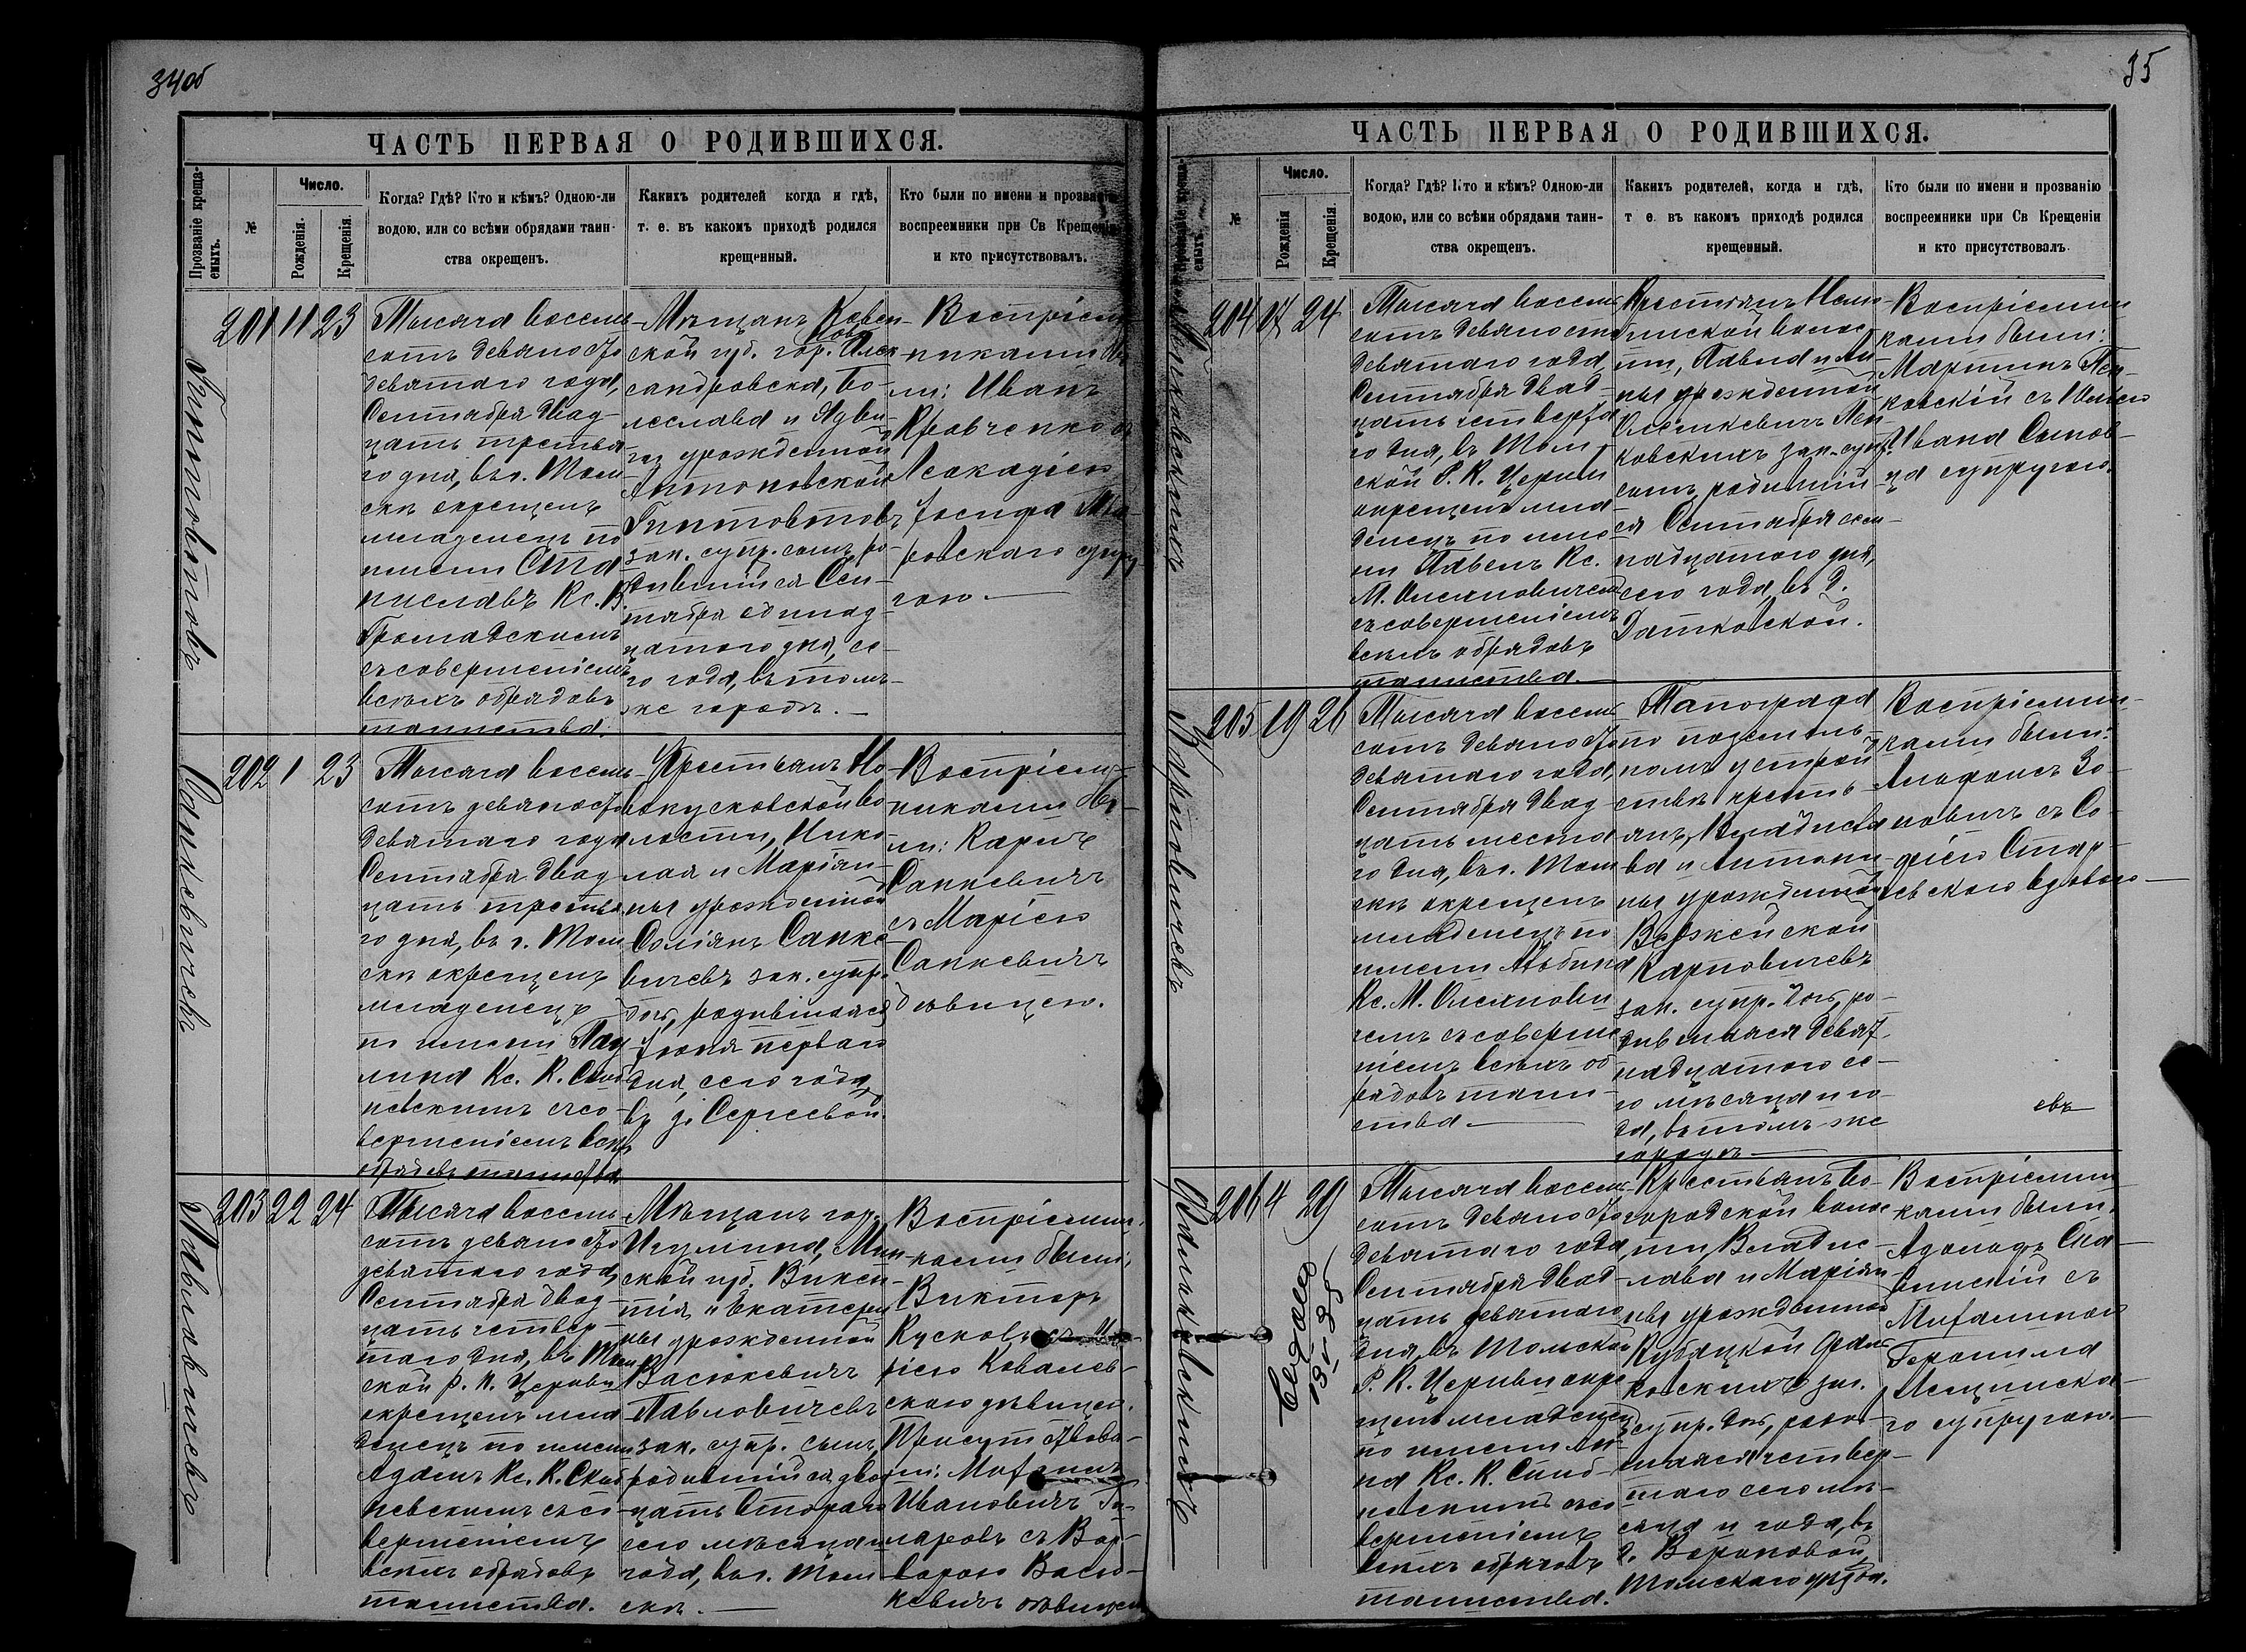 34об
ЧАСТЬ ПЕРВАЯ О РОДИВШИХСЯ.
Прозваніе креща-
емыхъ.
№
Число.
Рожденія.
Крещенія.
Когда? Гдѣ? Кто и кѣмъ? Одною-ли
водою, или со всѣми обрядами таин-
ства окрещенъ.
Какихъ родителей когда и гдѣ,
т. е. въ какомъ приходѣ родился
крещенный.
Кто были по имени и прозванію
воспреемники при Св Крещеніи
и кто присутствовалъ.
Гинтовтовъ
201 11 23
Тысяча восемь
сотъ девяносто
девятаго года,
Сентября двад-
цать третья
го дня, въ г. Том
скѣ окрещенъ
младенецъ по
имени Ста
ниславъ Кс. В.
Громадскимъ
съ совершеніемъ
всѣхъ обрядовъ
таинства.
Мѣщанъ Ковен-
ской губ. гор. Ново
Алек
сандровска, Бо-
леслава и Ядви-
ги урожденной
Антоновской
Гинтовтовъ
зак. супр. сынъ ро-
дившійся Сен-
тября одинад-
цатого дня, се-
го года, въ томъ
же городѣ.
Воспріем-
никами бы
ли: Иванъ
Кравченко съ
Леокадіею
Іосифа
ровскаго супру
гою.
Санкевичъ
202 1 23
Тысяча восемь
сотъ девяносто
девятаго года
Сентября двад
цать третья
го дня, въ г. Том
скѣ окрещенъ
младенецъ
по имени Пау
лина Кс. К.
невскимъ съ со-
вершеніемъ всѣхъ
обрядовъ таинства
Крестьянъ Но
вокусковской во
лости, Нико
лая и Маріан-
ны урожденной
Санке
вичевъ зак. супр.
дочь, родившаяся
Іюня перваго
дня, сего года,
въ д. Сергеевой.
Воспріем-
никами бы-
ли: Карлъ
Санкевичъ
съ Маріею
Санкевичъ
дѣвицею.
Павловичевъ
203 22 24
Тысяча восемь
сотъ девяносто
девятаго года
Сентября двад-
цать четвер-
таго дня, въ Том
ской Р. К. Церкви
окрещенъ мла
денецъ по имени
Адамъ Кс. К.
невскимъ съ со
вершеніемъ
всѣхъ обрядовъ
таинства.
Мѣщанъ гор.
Игумена, Мин
ской губ. Викен-
тія и Екатери
ны урожденной
Васюкевичъ
Павловичевъ
зак. супр. сынъ,
родившійся два
цать Втораго
сего мѣсяца и
года, въ г. Том
скѣ.
Воспріемни-
ками были:
Викторъ
Кусковъ съ Ма
ріею Ковалев-
скаго дѣвицею.
Присутствова-
ли:
Ивановичъ
ларовъ съ Вар-
варою Васю-
кевичъ дѣвицею
35
ЧАСТЬ ПЕРВАЯ О РОДИВШИХСЯ.
Прозваніе креща-
емыхъ.
№
Число.
Рожденія
Крещенія.
Когда? Гдѣ? Кто и кѣмъ? Одною-ли
водою, или со всѣми обрядами таин-
ства окрещенъ.
Какихъ родителей, когда и гдѣ,
т е. въ какомъ приходѣ родился
крещенный.
Кто были по имени и прозванію
воспреемники при Св Крещеніи
и кто присутствовалъ.
Пенковскихъ
204 17 24
Тысяча восемь
сотъ девяносто
девятаго года
Сентября двад-
цать четверта
го дня, въ Том
ской Р. К. Церкви
окрещенъ мла
денецъ по име
ни Павелъ Кс.
М. Олехновичемъ
съ совершеніемъ
всѣхъ обрядовъ
таинства.
Крестьянъ
волос
ти, Павла и Ан-
ны урожденной
Пен
ковскихъ зак. супр.
сынъ, родившій
ся Сентября сем
надцатого дня,
сего года въ д.
Датковской.
Воспріемни
ками были:
Мартинъ Пен-
ковскій съ
Ивана
ца супругою.
Карповичевъ
205 19 26
Тысяча восемь
сотъ девяносто
девятаго года,
Сентября двад
цать шеста
го дня, въ г. Том
скѣ окрещенъ
младенецъ по
имени Альбина
Кс. М. Олехнови
чемъ съ соверше
ніемъ всѣхъ об
рядовъ таин-
ства.
Топографа
по поземель-
ному устрой
ству крестъ-
янъ, Владисла
ва и Антони
ны урожденной
Карповичевъ
зак. супр. дочь, ро-
дившаяся девят
надцатого се-
го мѣсяца и го
да, въ томъ же
городѣ.
Воспріемни-
ками были:
Альфонсъ Зо-
новичъ съ Со-
фіею
евскаго вдовою
евъ
206 4 29
Тысяча восемь
сотъ девяносто
девятаго года
Сентября двад
цать девятаго
дня, въ Томской
Р. К. Церкви окре
щенъ младенецъ
по имени Ан
на Кс. К.
невскимъ съ со
вершеніемъ
всѣхъ обрядовъ
таинства.
Крестьянъ Бо-
городской волос
ти, Владис-
лава и Маріан
ны урожденной
зак.
супр. дочь, родив-
шаяся четвер-
таго сего мѣ-
сяца и года, въ
д. Вороновой,
Томскаго уѣзда.
Воспріемни
ками были:
Адольфъ
съ
го супругою.